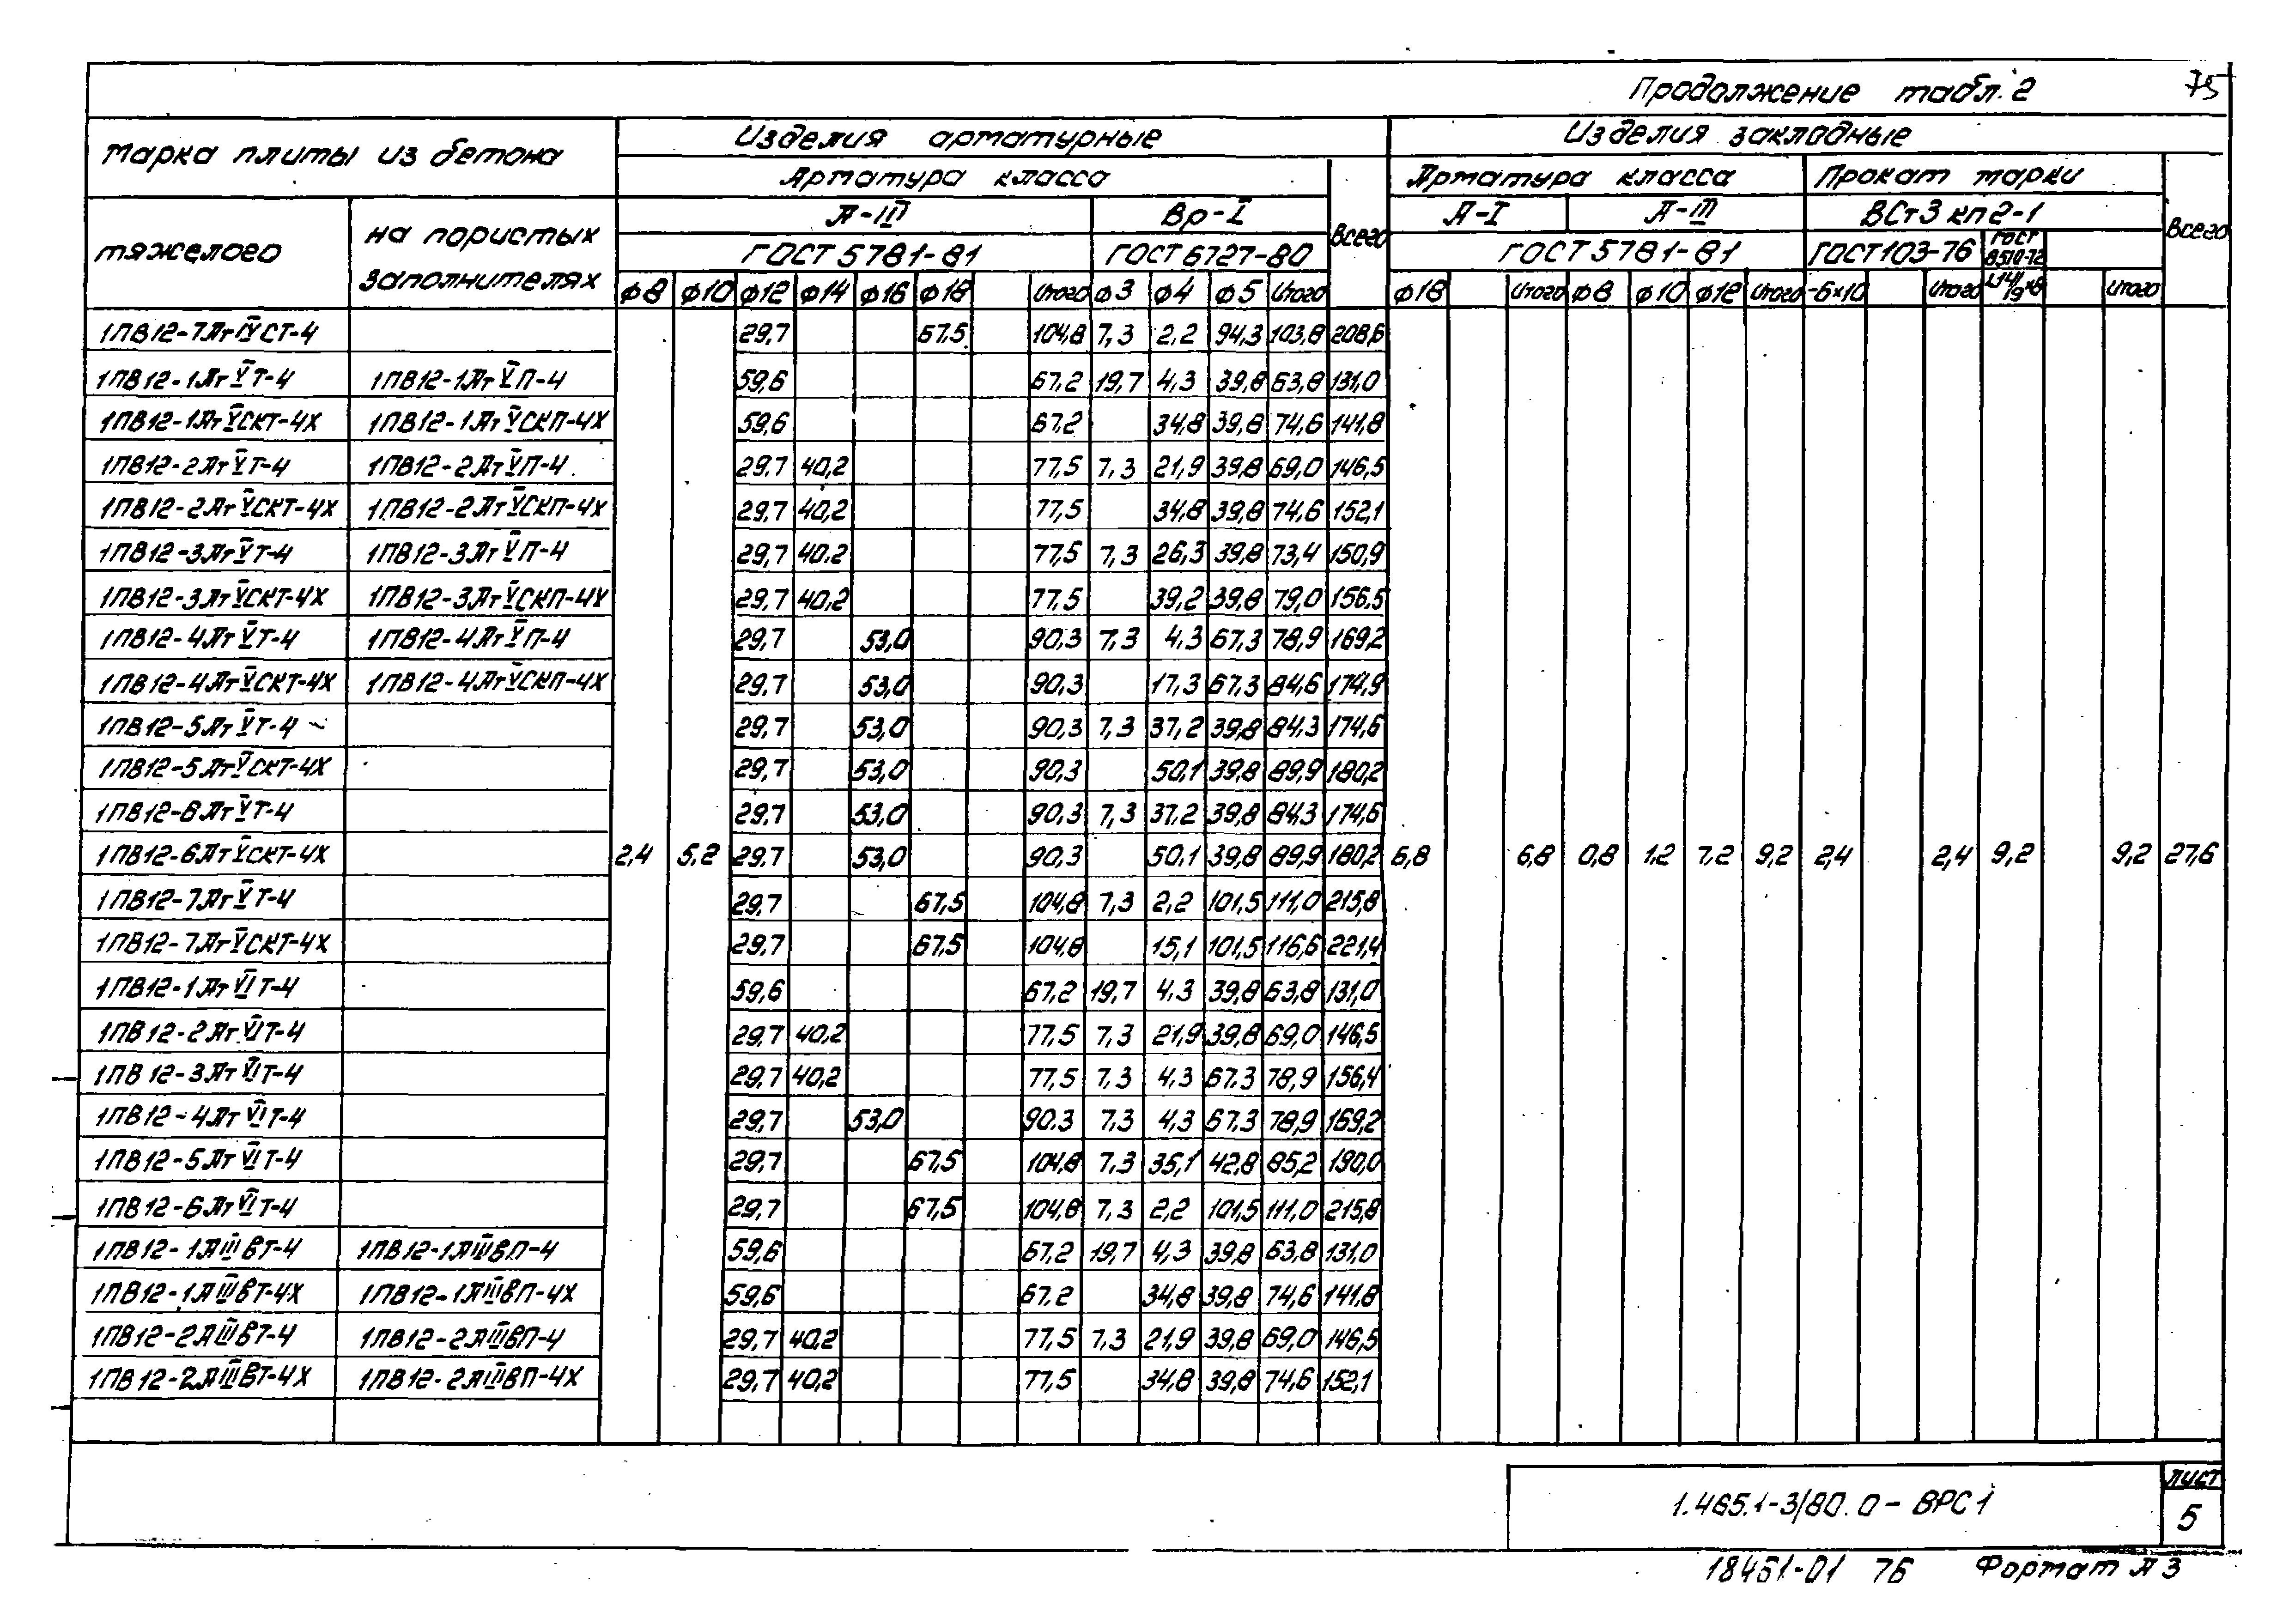 Продолжение табл. 2 75
Марка плиты из бетона Изделия арматурные Изделия закладные
Арматура класса Всего Арматура класса Прокат марки Всего
тяжелого на пористых заполнителях А-III Вр-I А-I А-III ВСт3 кп2-1
ГОСТ 5781-81 ГОСТ 6727-80 ГОСТ 5781-81 ГОСТ 103-76 ГОСТ 8510-72
ф8 ф10 ф12 ф14 ф16 ф18 Итого ф3 ф4 ф5 Итого ф18 Итого ф8 ф10 ф12 Итого -6×10 Итого Итого
1ПВ12-7АтIVСТ-4 29,7 67,5 104,8 7,3 2,2 94,3 103,8 208,6
1ПВ12-1АтVТ-4 1ПВ12-1АтVП-4 59,6 67,2 19,7 4,3 39,8 63,8 131,0
1ПВ12-1АтVСКТ-4Х 1ПВ12-1АтVСКП-4Х 59,6 67,2 34,8 39,8 74,6 141,8
1ПВ12-2АтVТ-4 1ПВ12-2АтVП-4 29,7 40,2 77,5 7,3 21,9 39,8 69,0 146,5
1ПВ12-2АтVСКТ-4Х 1ПВ12-2АтVСКП-4Х 29,7 40,2 77,5 34,8 39,8 74,6 152,1
1ПВ12-3АтVТ-4 1ПВ12-3АтVП-4 29,7 40,2 77,5 7,3 26,3 39,8 73,4 150,9
1ПВ12-3АтVСКТ-4Х 1ПВ12-3АтVСКП-4Х 29,7 40,2 77,5 39,2 39,8 79,0 156,5
1ПВ12-4АтVТ-4 1ПВ12-4АтVП-4 29,7 53,0 90,3 7,3 4,3 67,3 78,9 169,2
1ПВ12-4АтVСКТ-4Х 1ПВ12-4АтVСКП-4Х 29,7 53,0 90,3 17,3 67,3 84,6 174,9
1ПВ12-5АтVТ-4 29,7 53,0 90,3 7,3 37,2 39,8 84,3 174,6
1ПВ12-5АтVСКТ-4Х 29,7 53,0 90,3 50,1 39,8 89,9 180,2
1ПВ12-6АтVТ-4 29,7 53,0 90,3 7,3 37,2 39,8 84,3 174,6
1ПВ12-6АтVСКТ-4Х 2,4 5,2 29,7 53,0 90,3 50,1 39,8 89,9 180,2 6,8 6,8 0,8 1,2 7,2 9,2 2,4 2,4 9,2 9,2 27,6
1ПВ12-7АтVТ-4 29,7 67,5 104,8 7,3 2,2 101,5 111,0 215,8
1ПВ12-7АтVСКТ-4Х 29,7 67,5 104,8 15,1 101,5 116,6 221,4
1ПВ12-1АтVIТ-4 59,6 67,2 19,7 4,3 39,8 63,8 131,0
1ПВ12-2АтVIТ-4 29,7 40,2 77,5 7,3 21,9 39,8 69,0 146,5
1ПВ12-3АтVIТ-4 29,7 40,2 77,5 7,3 4,3 67,3 78,9 156,4
1ПВ12-4АтVIТ-4 29,7 53,0 90,3 7,3 4,3 67,3 78,9 169,2
1ПВ12-5АтVIТ-4 29,7 67,5 104,8 7,3 35,1 42,8 85,2 190,0
1ПВ12-6АтVIТ-4 29,7 67,5 104,8 7,3 2,2 101,5 111,0 215,8
1ПВ12-1АIIIВТ-4 1ПВ12-1АIIIВП-4 59,6 67,2 19,7 4,3 39,8 63,8 131,0
1ПВ12-1АIIIВТ-4Х 1ПВ12-1АIIIВП-4Х 59,6 67,2 34,8 39,8 74,6 141,8
1ПВ12-2АIIIВТ-4 1ПВ12-2АIIIВП-4 29,7 40,2 77,5 7,3 21,9 39,8 69,0 146,5
1ПВ12-2АIIIВТ-4Х 1ПВ12-2АIIIВП-4Х 29,7 40,2 77,5 34,8 39,8 74,6 152,1
1.465.1-3/80.0-ВРС1 Лист
5
18461-01 76 Формат А3